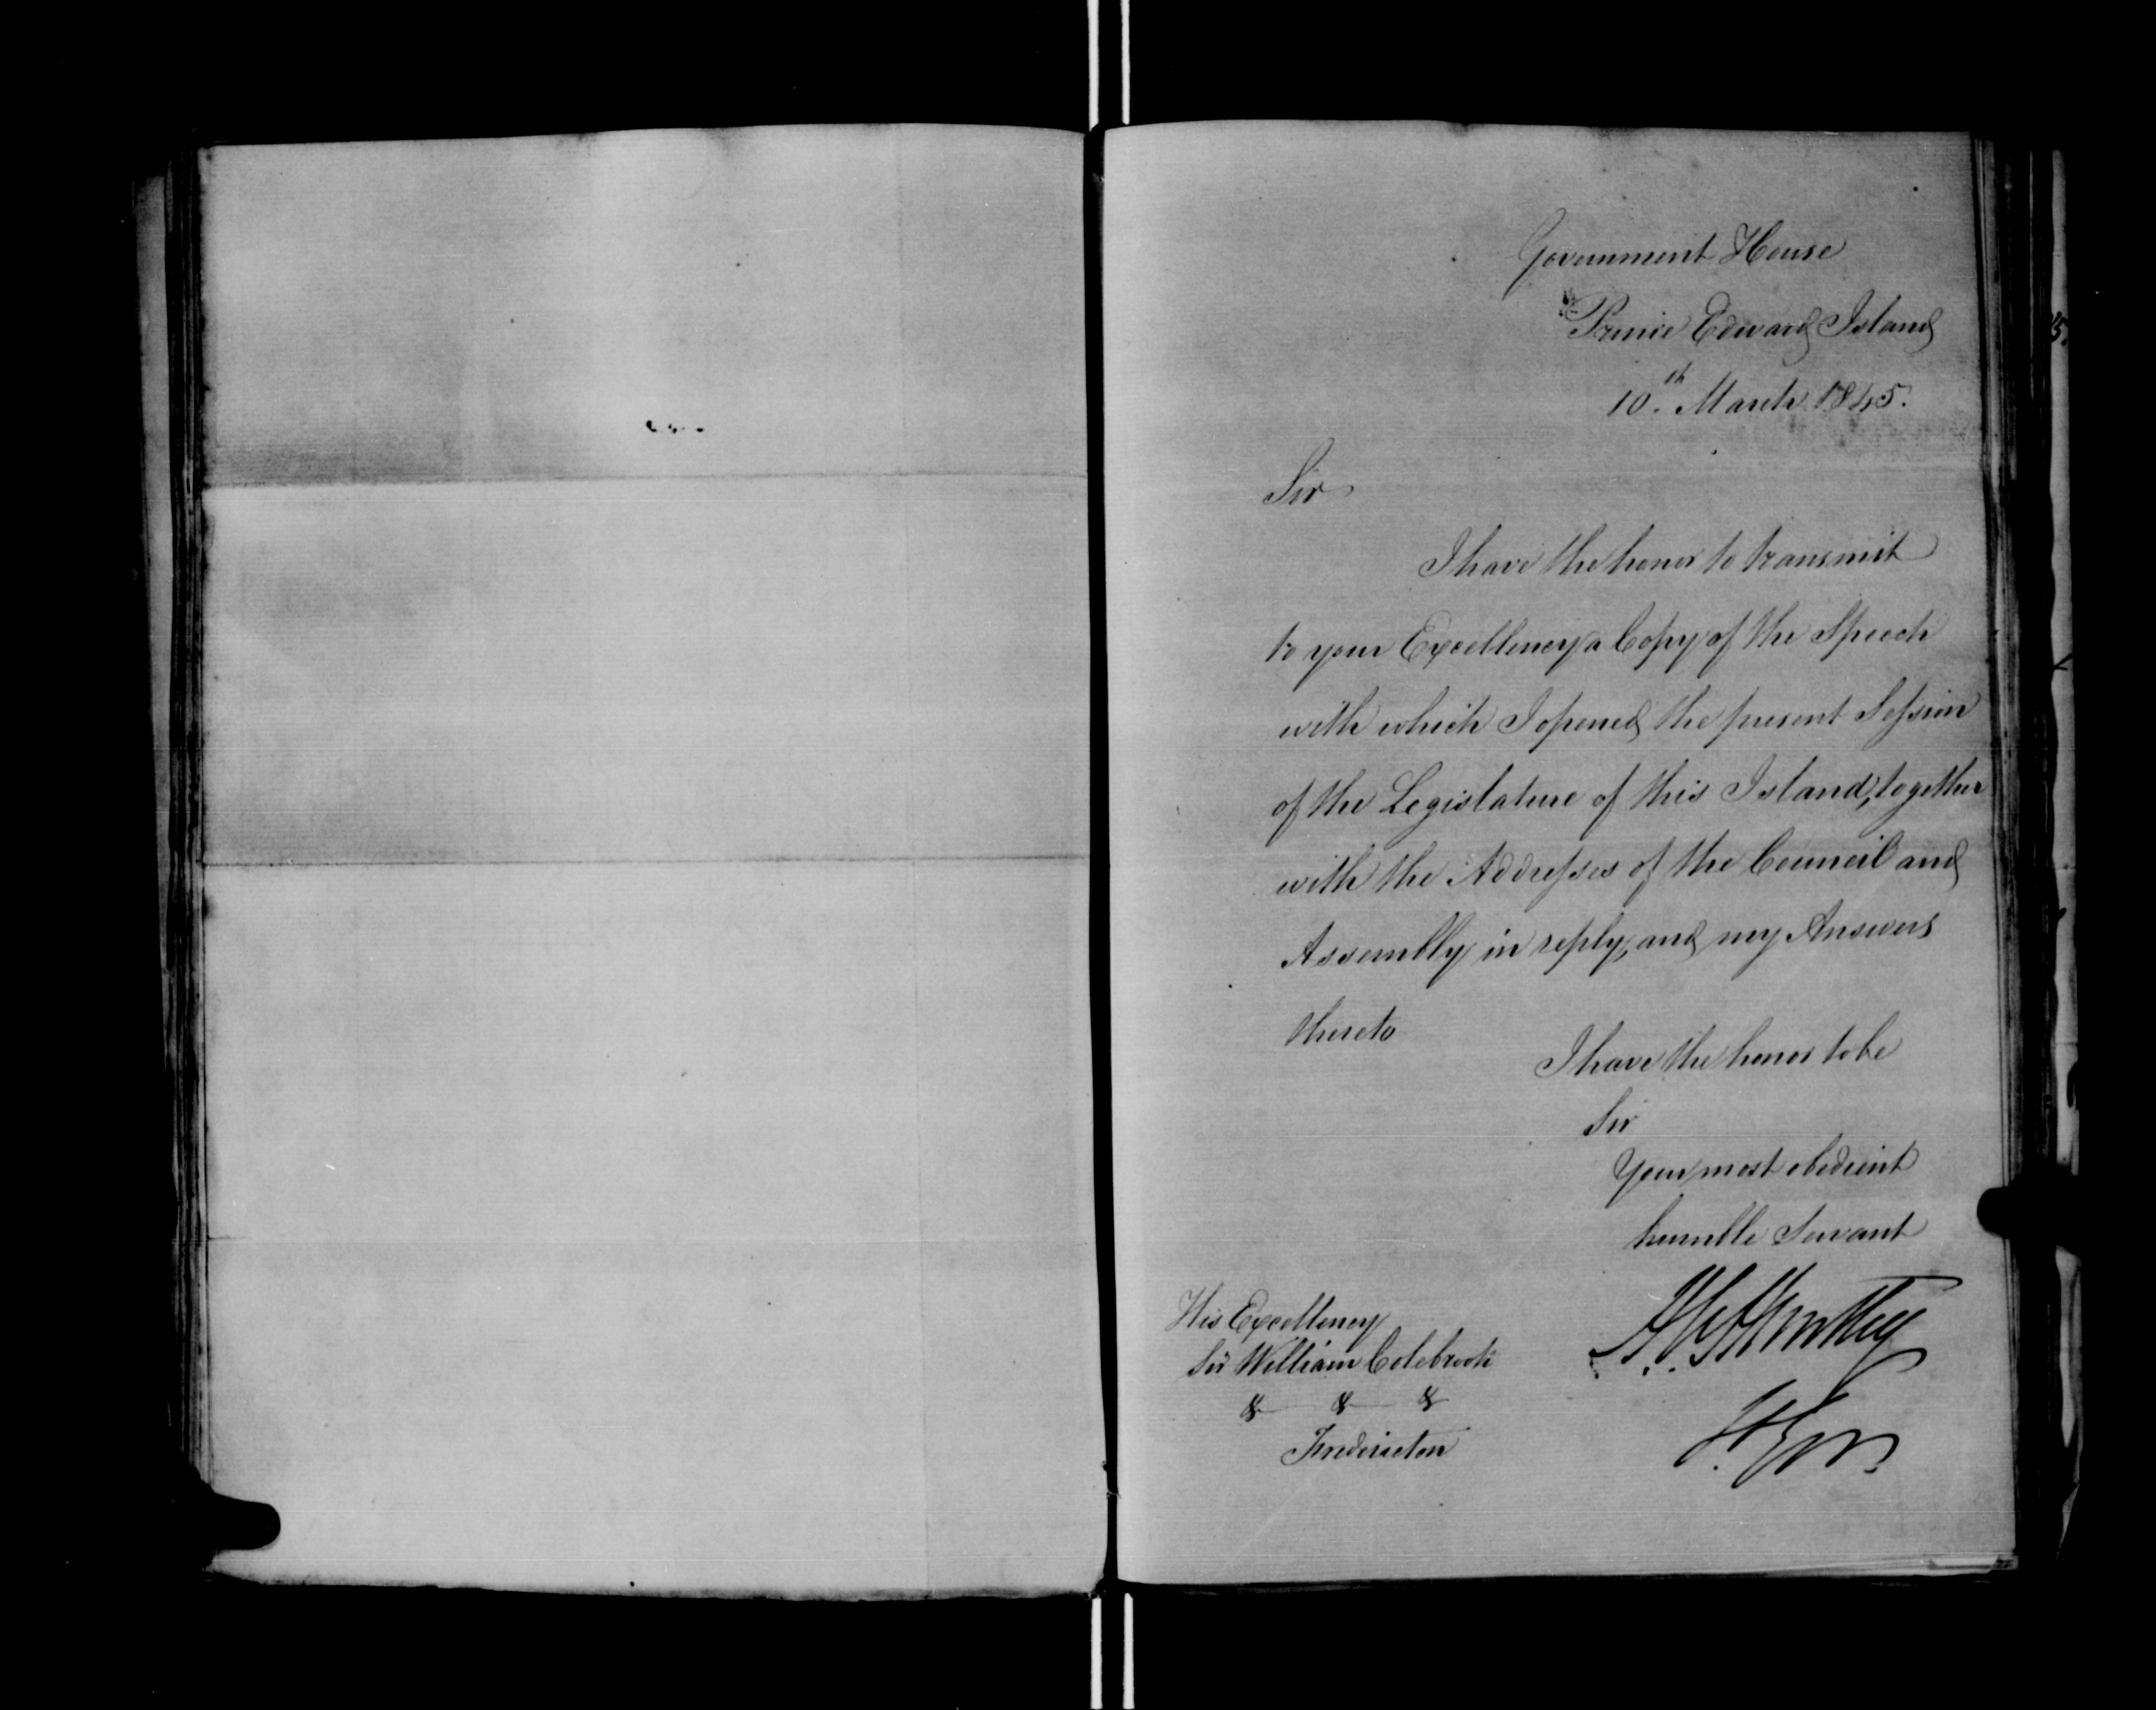 Government House
Prince Edward Island
10th. March 1845.
Sir
I have the honor to transmit
to your Excellency a Copy of the Speech
with which I opened the present Session
of the Legislature of this Island, together
with the Addresses of the Council and
Assembly in reply, and my Answers
thereto
I have the honor to be
Sir
Your most obedient
humble Servant
His Excellency
Sir William Colebrook
& & &
Fredericton